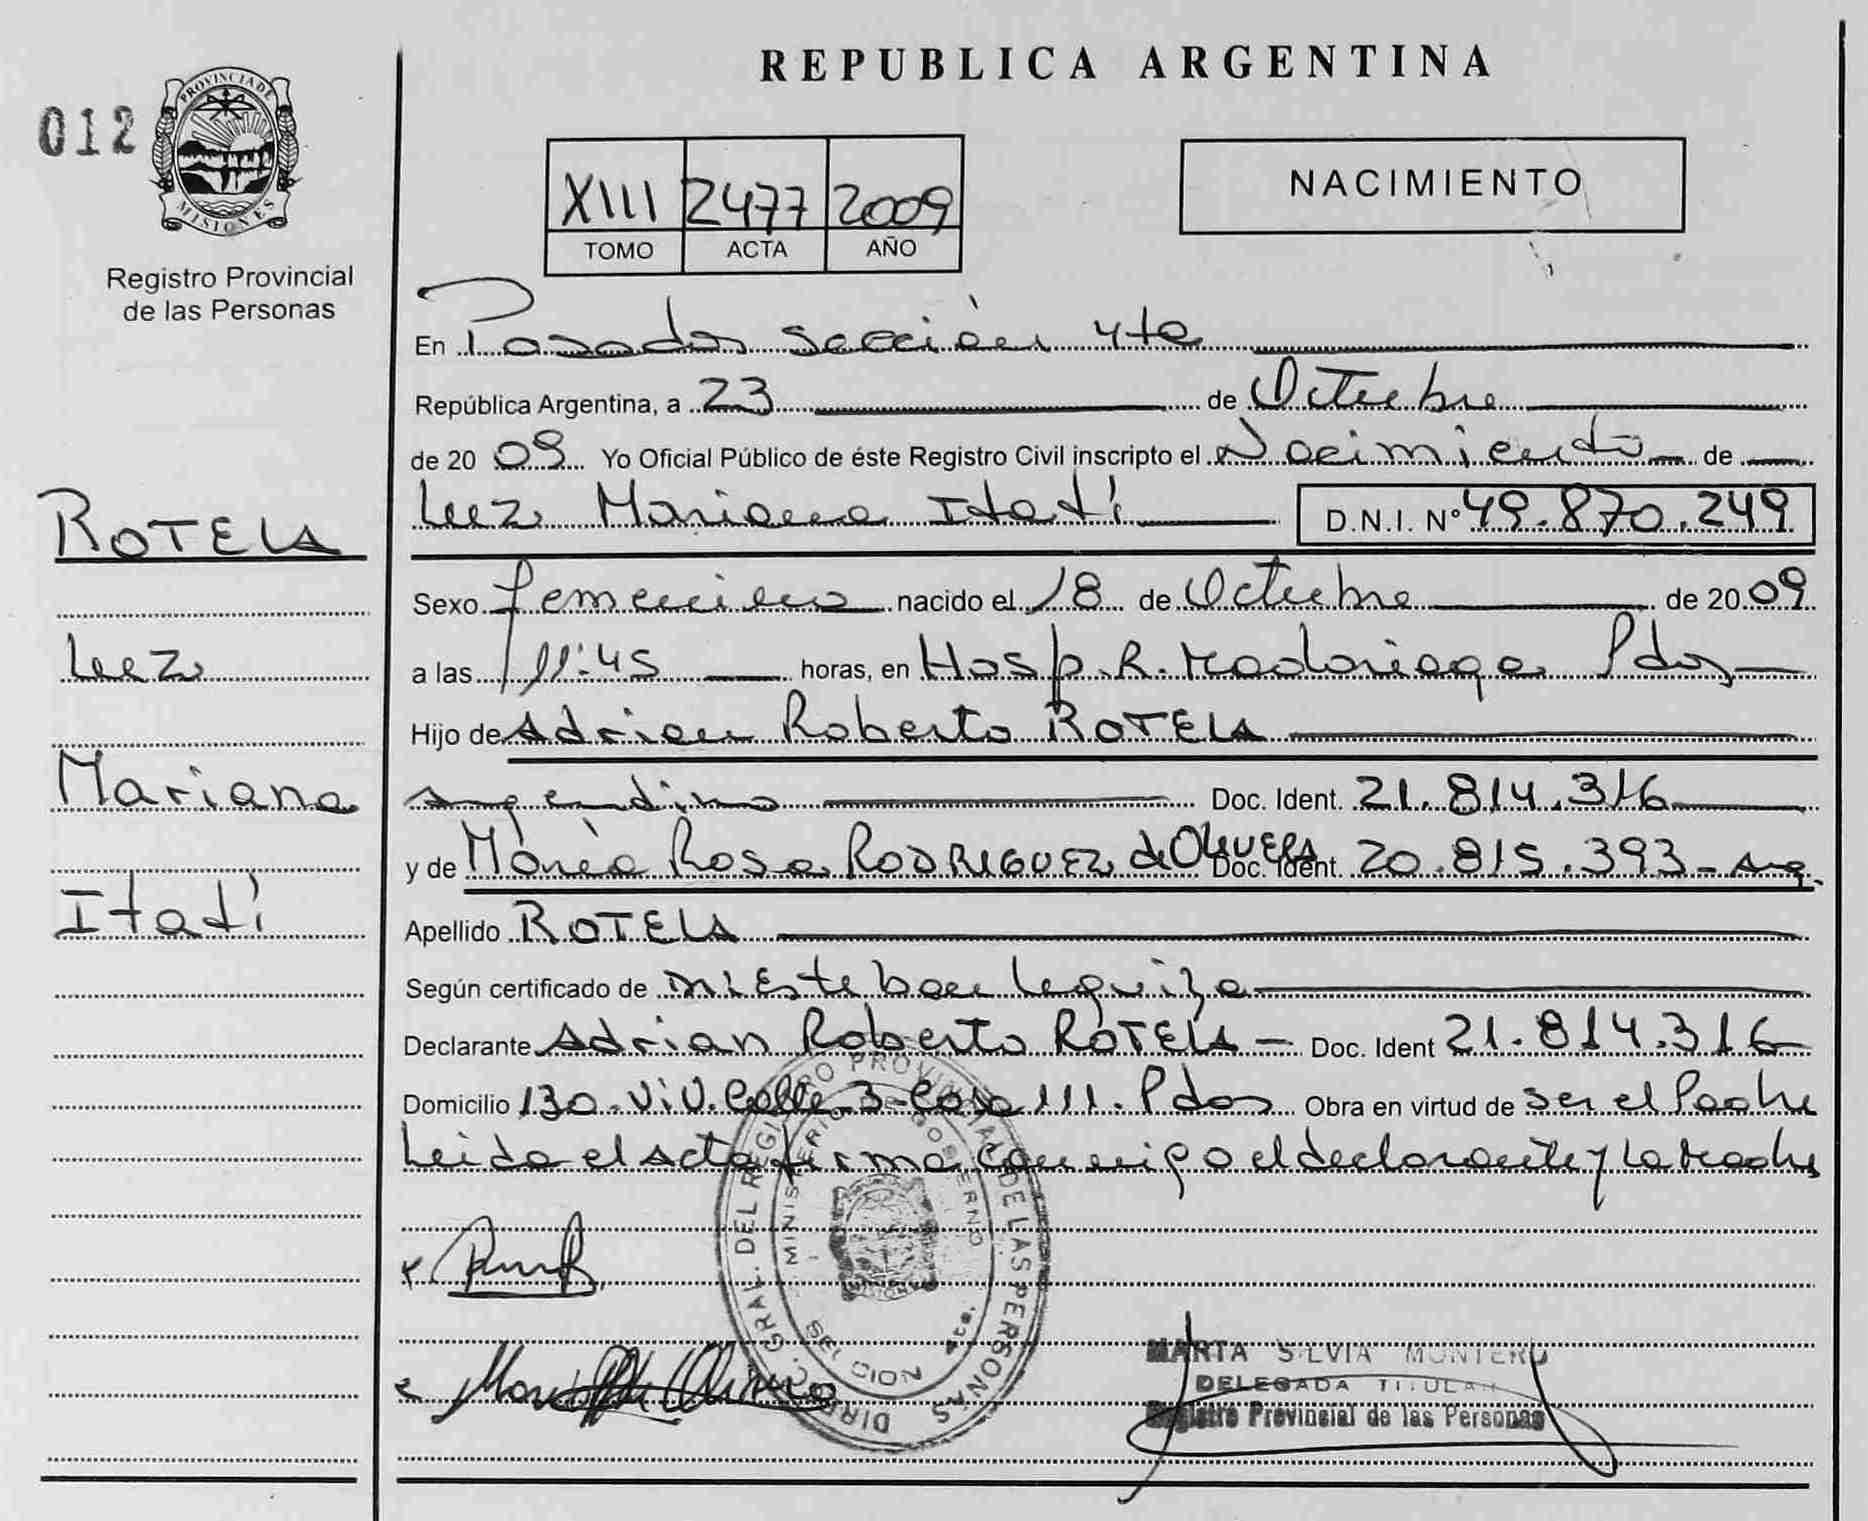 REPUBLICA ARGENTINA
012
PROVINCIA DE
MISIONES
Registro Provincial
de las Personas
XIII 2477 2009
TOMO ACTA AÑO
NACIMIENTO
ROTELA
Luz
Mariana
Itatí
En Posadas sección 4ta
República Argentina, a 23 de Octubre
de 2009 Yo Oficial Público de éste Registro Civil inscripto el Nacimiento de
Luz Mariana Itatí D.N.I. Nº 49.870.249
Sexo femenino nacido el 18 de Octubre de 2009
a las 11:45 horas, en Hosp. R. Madariaga Pdas
Hijo de Adrian Roberto ROTELA
Argentino Doc. Ident. 21.814.316
y de María Rosa RODRIGUEZ d OLIVERA Doc. Ident. 20.815.393 - Arg.
Apellido ROTELA
Según certificado de Esteban Leguiza
Declarante Adrian Roberto ROTELA Doc. Ident 21.814.316
Domicilio 130. Viv. Calle 3 Casa 111. Pdas Obra en virtud de ser el Padre
Leida el Acta firma conmigo el declarante y la Madre
DIRECC. GRAL. DEL REGISTRO PROVINCIAL DE LAS PERSONAS
MINISTERIO DE GOBIERNO
SECCION 4ta.
MARTA SILVIA MONTERO
DELEGADA TITULAR
Registro Provincial de las Personas